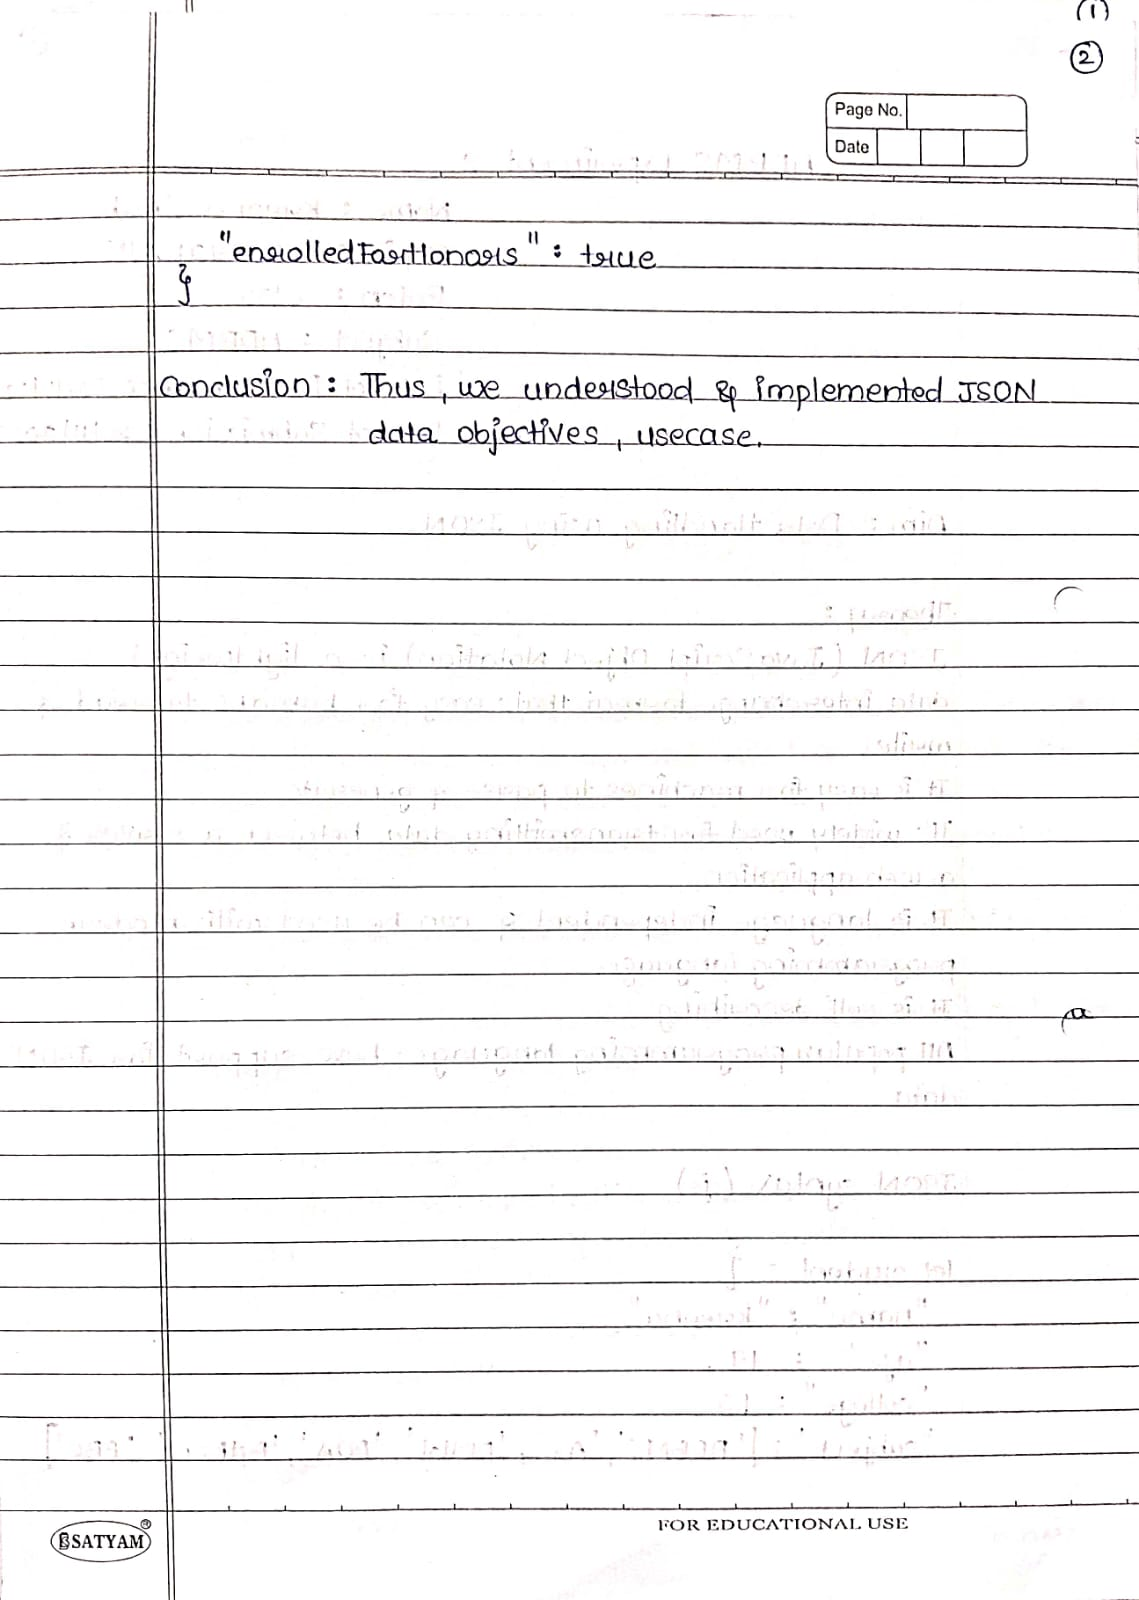 (1)
2
Page No.
Date
"enrolledForHonors" : true
}
Conclusion : Thus, we understood & implemented JSON
data objectives, usecase.
SATYAM
FOR EDUCATIONAL USE